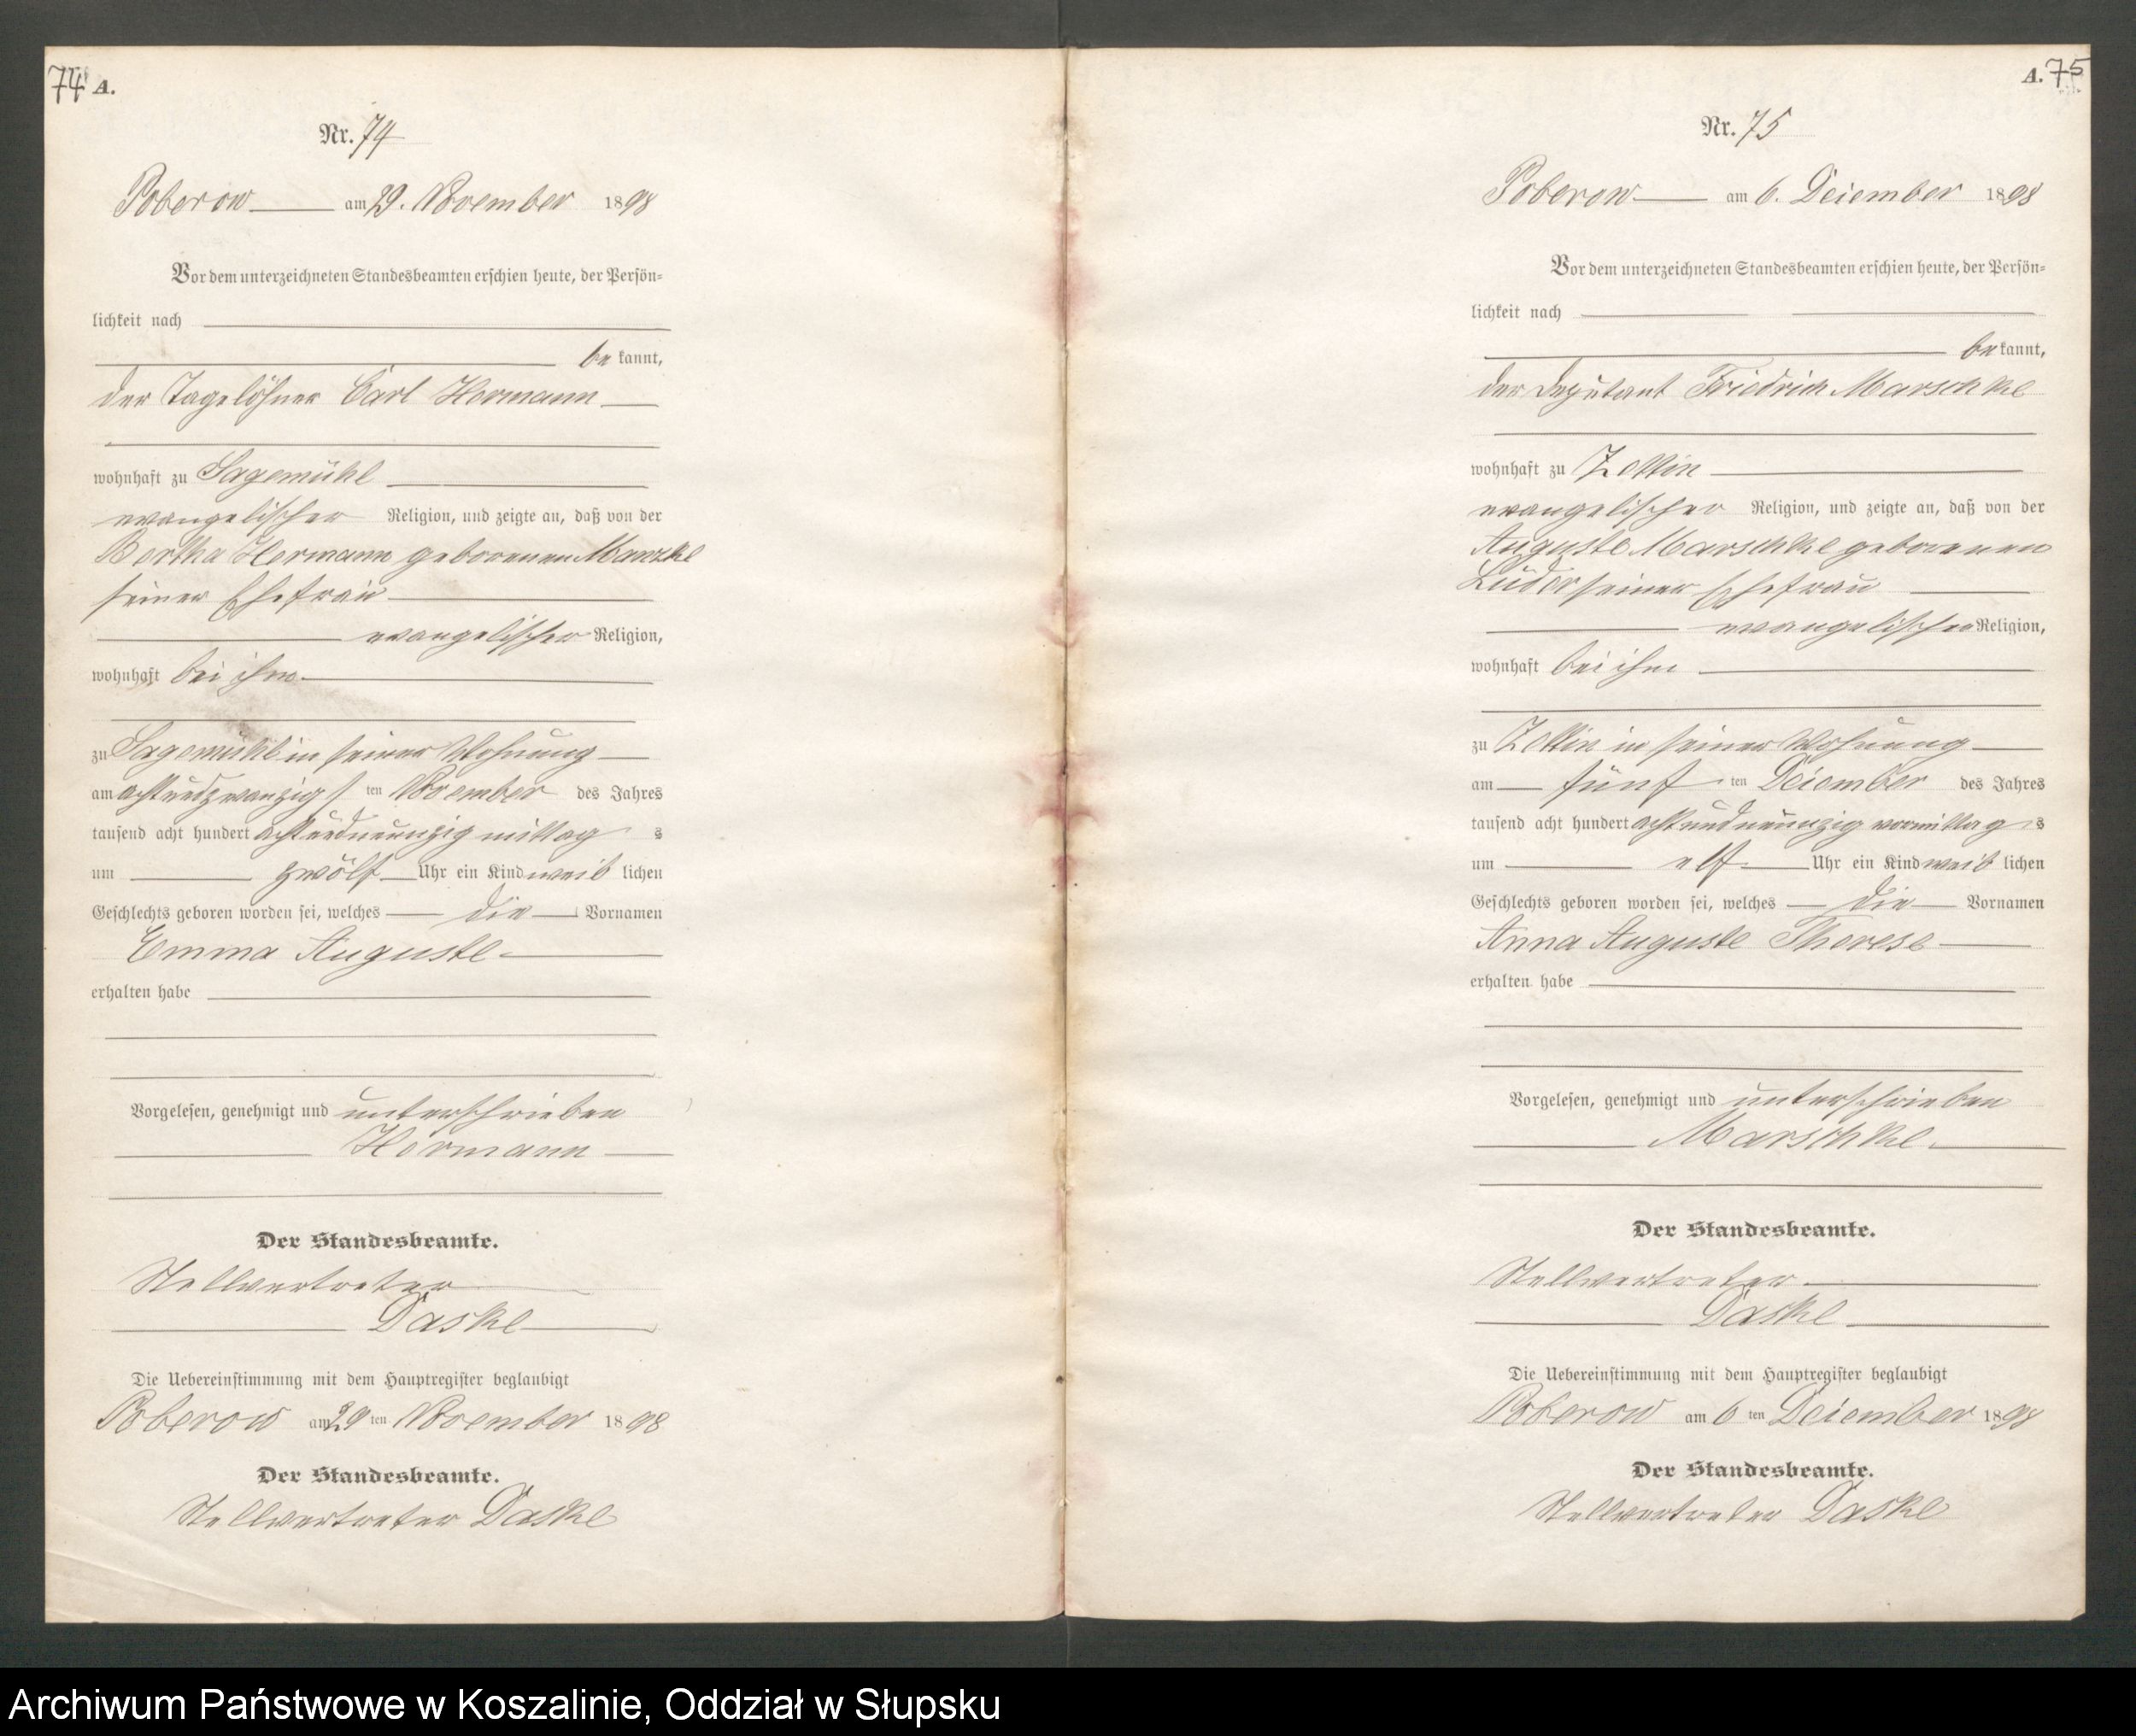 74 A.
Nr. 74
Poberow am 29. November 1898
Vor dem unterzeichneten Standesbeamten erschien heute, der Persön-
lichkeit nach
be kannt,
der Tagelöhner Carl Hermann
wohnhaft zu Sagemühl
evangelischer Religion, und zeigte an, daß von der
Bertha Hermann geborenen Manzke
seiner Ehefrau
evangelischer Religion,
wohnhaft bei ihm
zu Sagemühl in seiner Wohnung
am achtundzwanzigs ten November des Jahres
tausend acht hundert achtundneunzig mittag s
um zwölf Uhr ein Kind weib lichen
Geschlechts geboren worden sei, welches die Vornamen
Emma Auguste
erhalten habe
Vorgelesen, genehmigt und unterschrieben
Hermann
Der Standesbeamte.
Stellvertreter
Daske
Die Uebereinstimmung mit dem Hauptregister beglaubigt
Poberow am 29 ten November 1898
Der Standesbeamte.
Stellvertreter Daske
A. 75
Nr. 75
Poberow am 6. Deiember 1898
Vor dem unterzeichneten Standesbeamten erschien heute, der Persön-
lichkeit nach
be kannt,
der Deputant Friedrich Marschke
wohnhaft zu Zettin
evangelischer Religion, und zeigte an, daß von der
Auguste Marschke geborenen
Lüder seiner Ehefrau
evangelischer Religion,
wohnhaft bei ihm
zu Zettin in seiner Wohnung
am fünf ten Deiember des Jahres
tausend acht hundert achtundneunzig vormittag s
um elf Uhr ein Kind weib lichen
Geschlechts geboren worden sei, welches die Vornamen
Anna Auguste Therese
erhalten habe
Vorgelesen, genehmigt und unterschrieben
Marschke
Der Standesbeamte.
Stellvertreter
Daske
Die Uebereinstimmung mit dem Hauptregister beglaubigt
Poberow am 6 ten Deiember 1898
Der Standesbeamte.
Stellvertreter Daske
Archiwum Państwowe w Koszalinie, Oddział w Słupsku